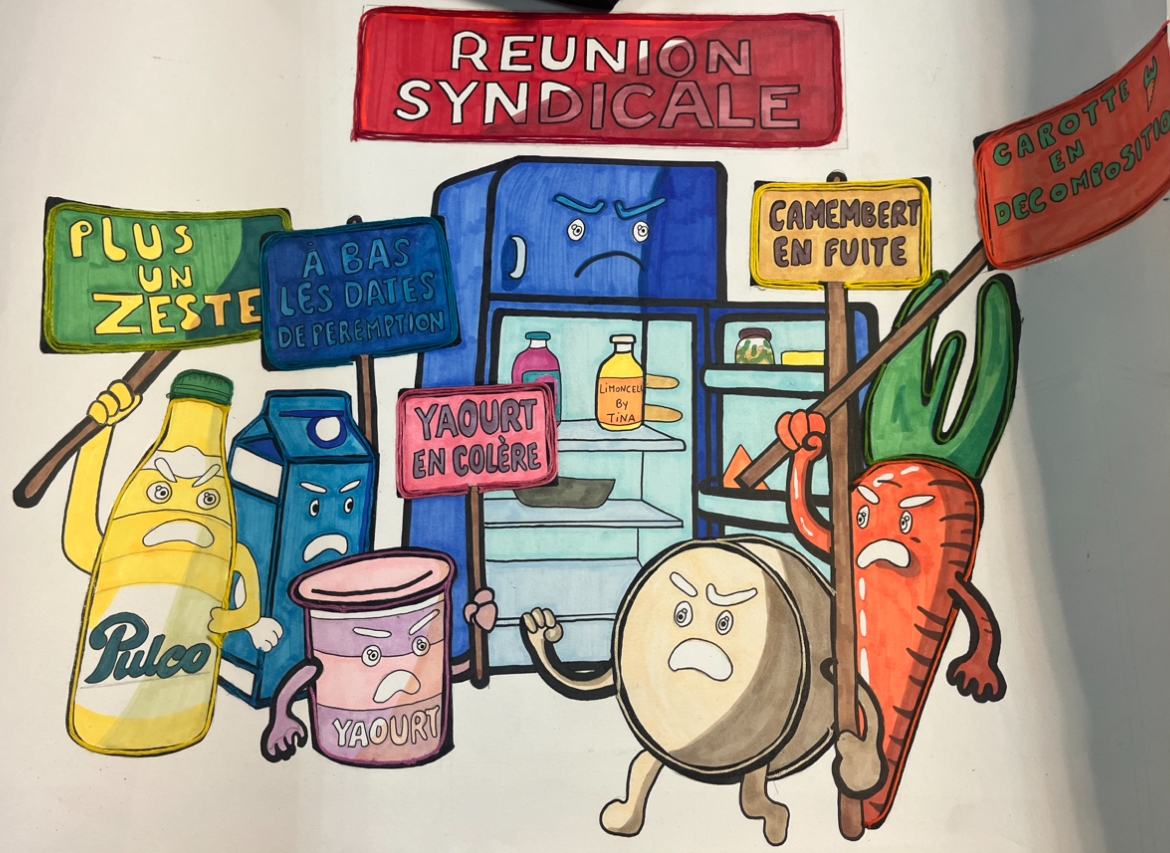 REUNION
SYNDICALE
PLUS
UN
ZESTE
À BAS
LES DATES
DE PEREMPTION
YAOURT
EN COLÈRE
CAMEMBERT
EN FUITE
CAROTTE
EN
DECOMPOSITIO
LiMONCELL
By
TiNA
Pulco
YAOURT